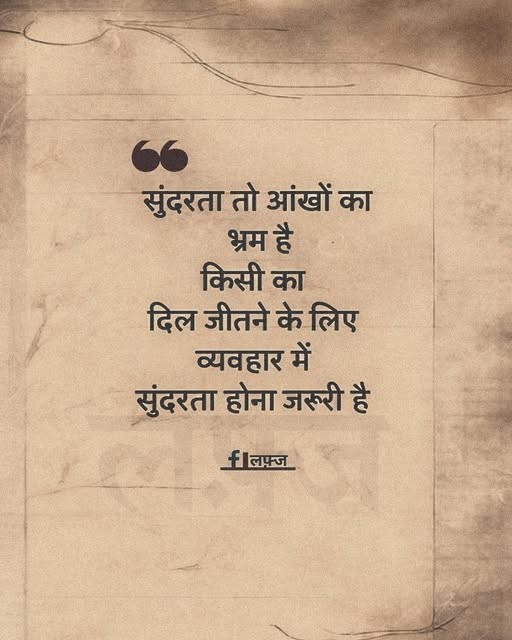 ❝
सुंदरता तो आंखों का
भ्रम है
किसी का
दिल जीतने के लिए
व्यवहार में
सुंदरता होना जरूरी है
f|लफ़्ज
लफ़्ज